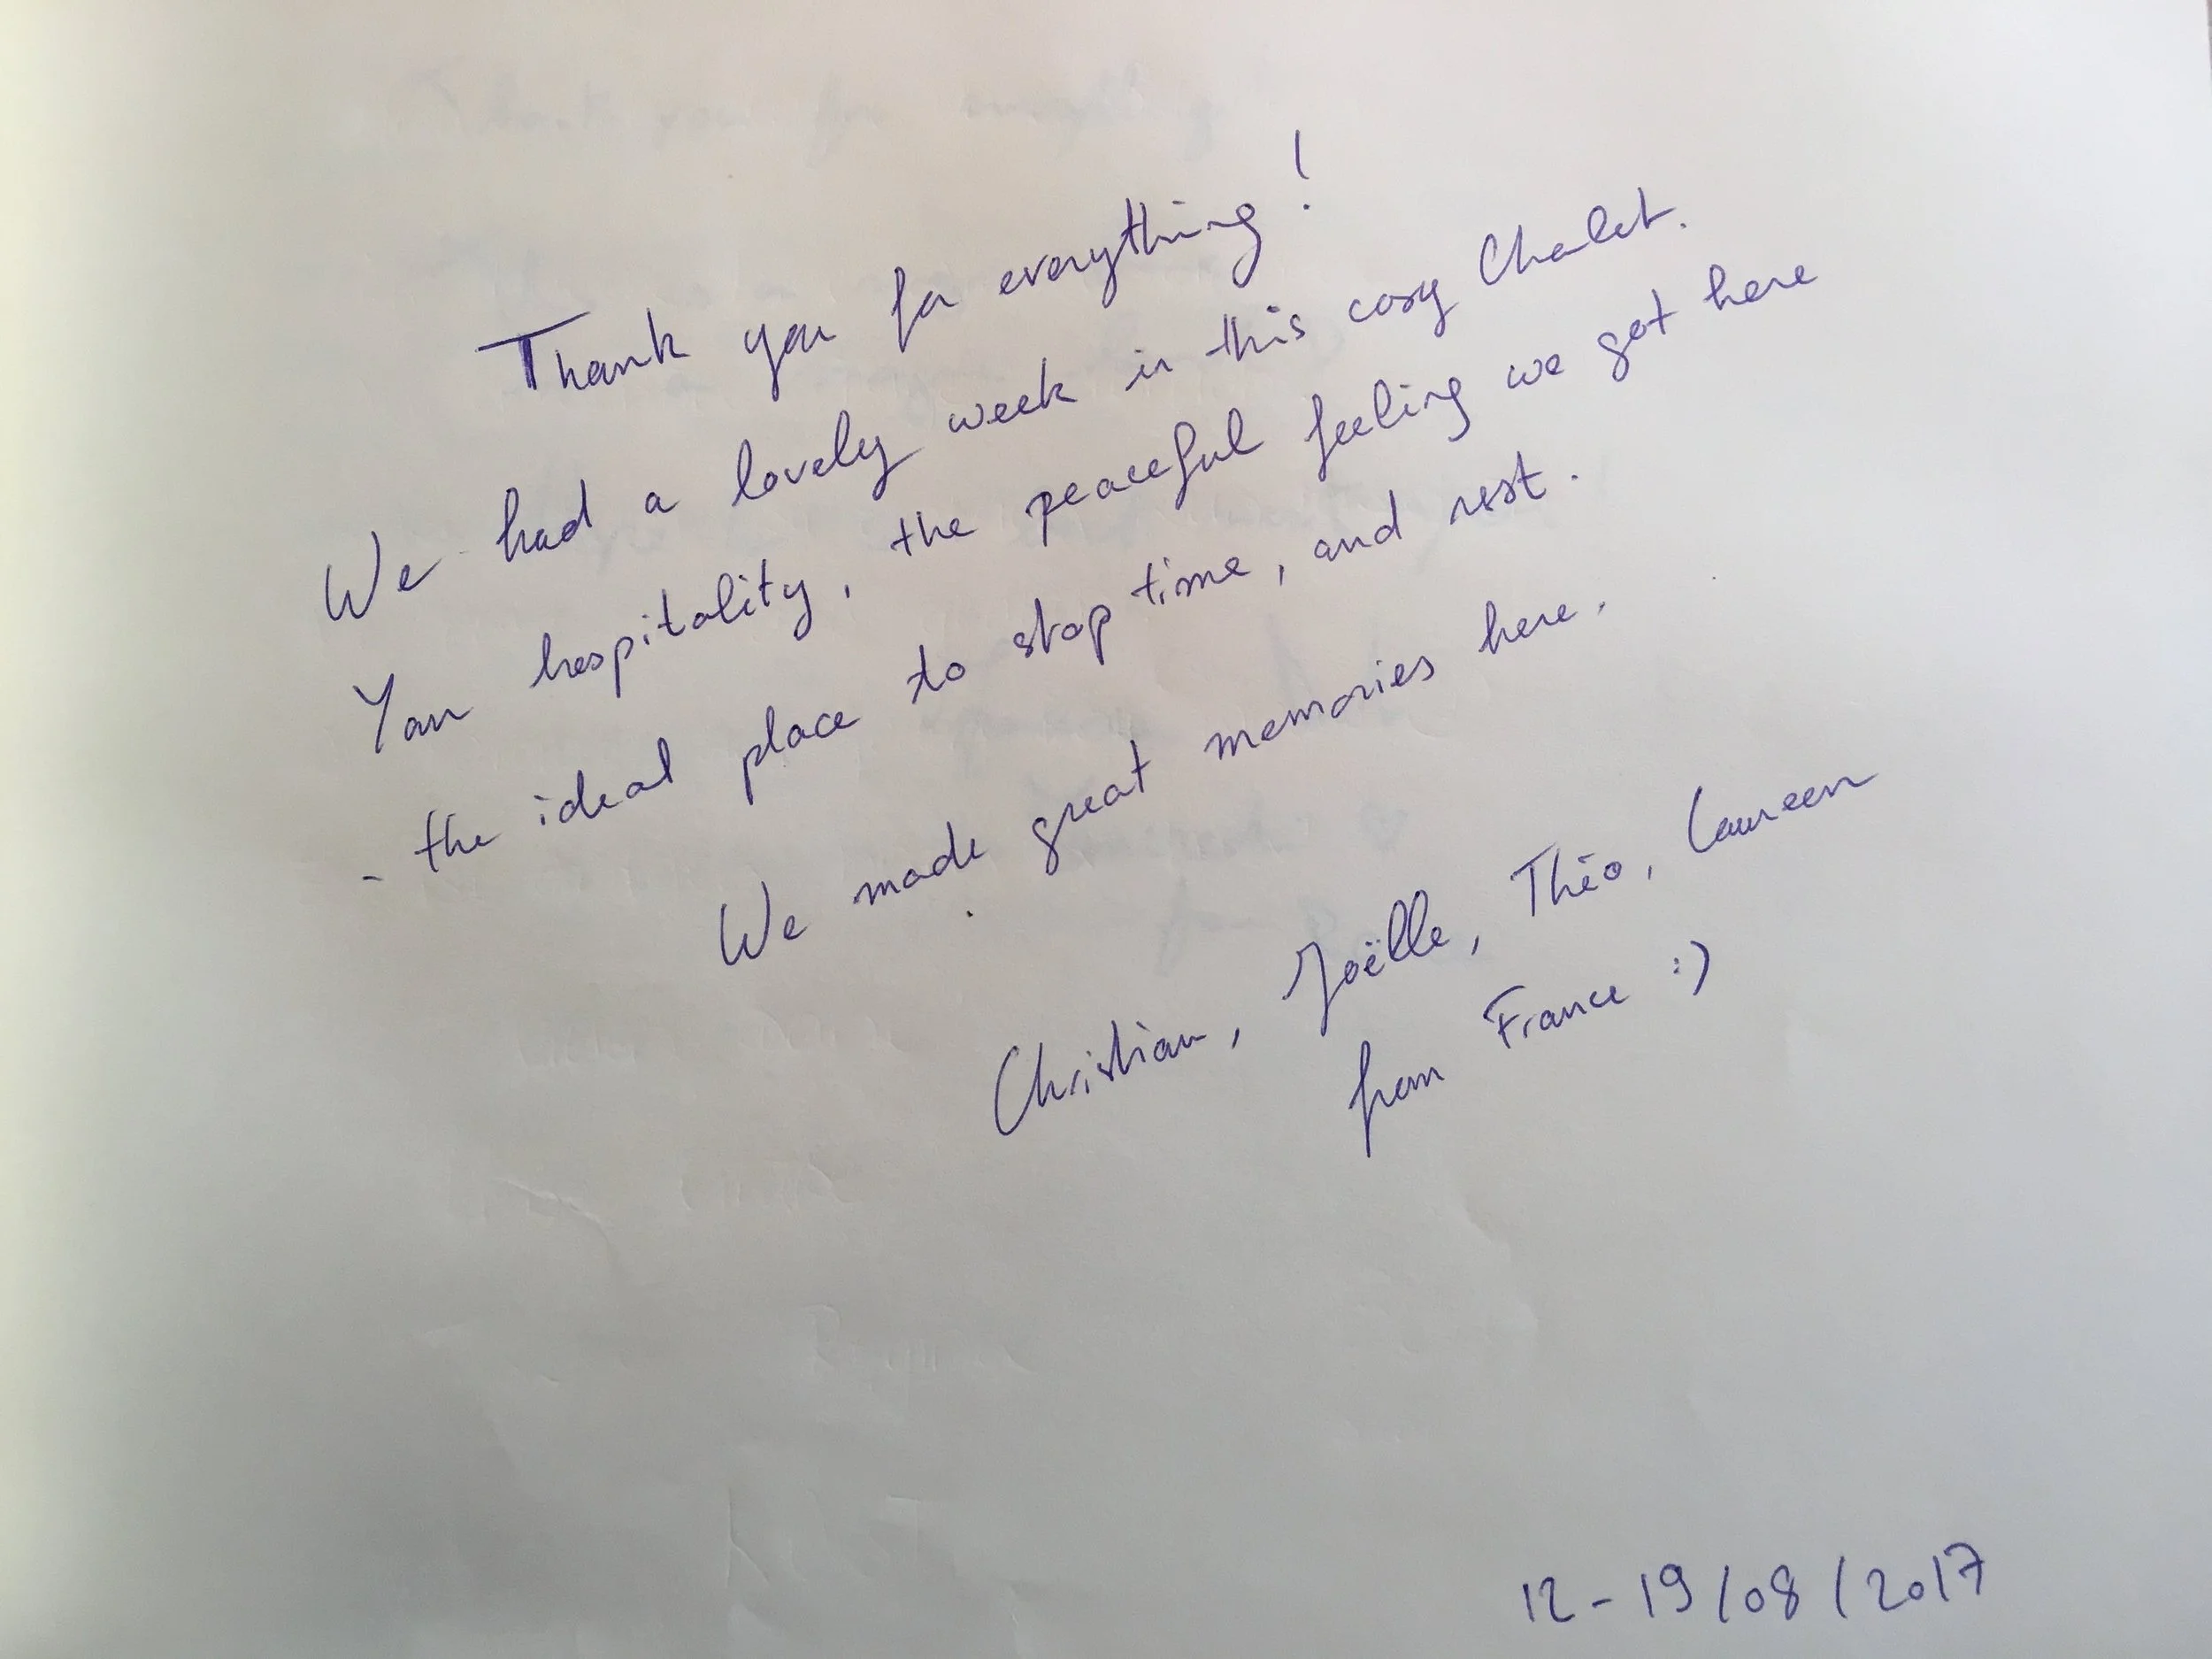 Thank you for everything!
We had a lovely week in this cosy Chalet.
Your hospitality, the peaceful feeling we got here
- the ideal place to stop time, and rest.
We made great memories here.
Christian, Joëlle, Théo, Laureen
from France :)
12-19/08/2017